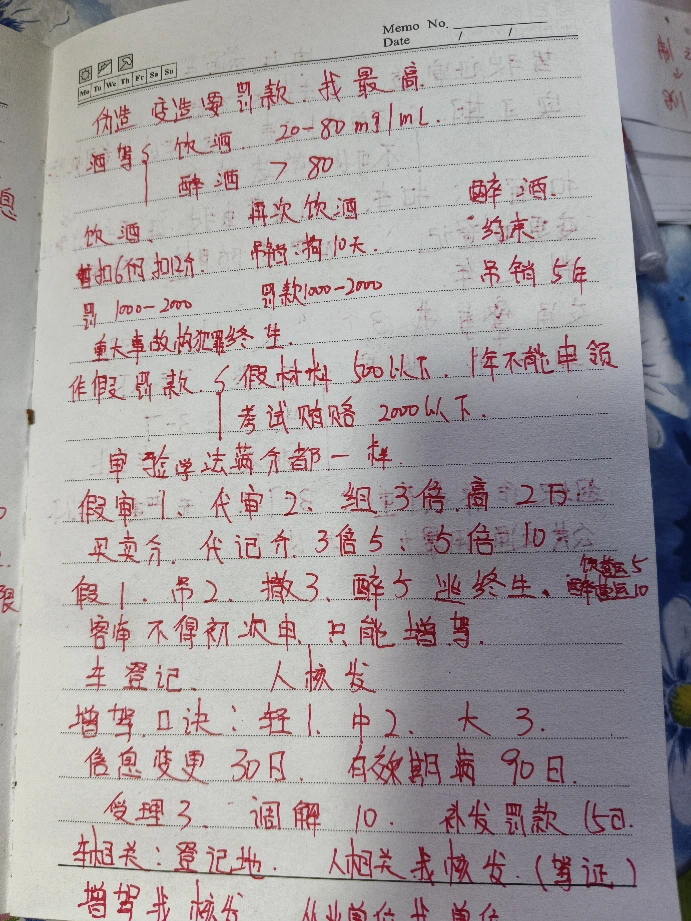 Memo No.
Date / /
Mo Tu We Th Fr Sa Su
伪造 变造要罚款.找最高.
酒驾{饮酒. 20-80mg/mL.
醉酒 >80
饮酒、 再次饮酒 醉酒.
暂扣6个月扣12分. 吊销.拘10天. 约束
罚 1000-2000 罚款1000-2000 吊销5年
重大事故构犯罪终生.
作假罚款.{假材料 500以下. 1年不能申领
考试贿赂 2000以下.
审验学法满分都一样.
假审1、代审2、组3倍.高2万
买卖分.代记分.3倍5、5倍10
假1.吊2.撤3、醉5 逃终生、
客审不得初次申.只能增驾.
车登记、 人核发
增驾口诀:轻1.中2. 大3.
信息变更30日. 有效期满90日.
受理3. 调解10. 补发罚款15日.
车相关:登记地. 人相关找核发.(驾证)
增驾找核发 从业单位找单位